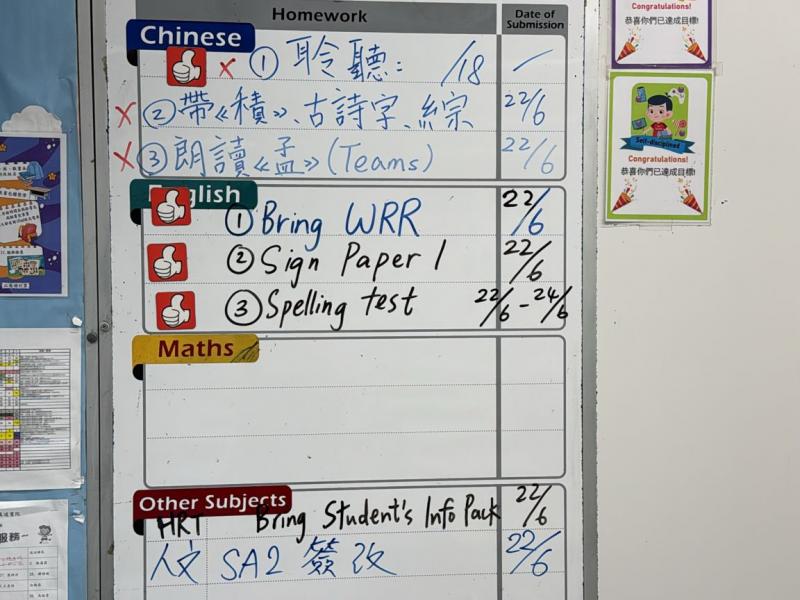 Homework Date of Submission
Chinese
① 聆聽: /18 —
② 帶《積》、古詩字、綜 22/6
③ 朗讀《孟》(Teams) 22/6
English
① Bring WRR 22/6
② Sign Paper 1 22/6
③ Spelling test 22/6 - 24/6
Maths
Other Subjects
HRT Bring Student's Info Pack 22/6
人文 SA2 簽改 22/6
Congratulations!
恭喜你們已達成目標!
Self-disciplined
Congratulations!
恭喜你們已達成目標!